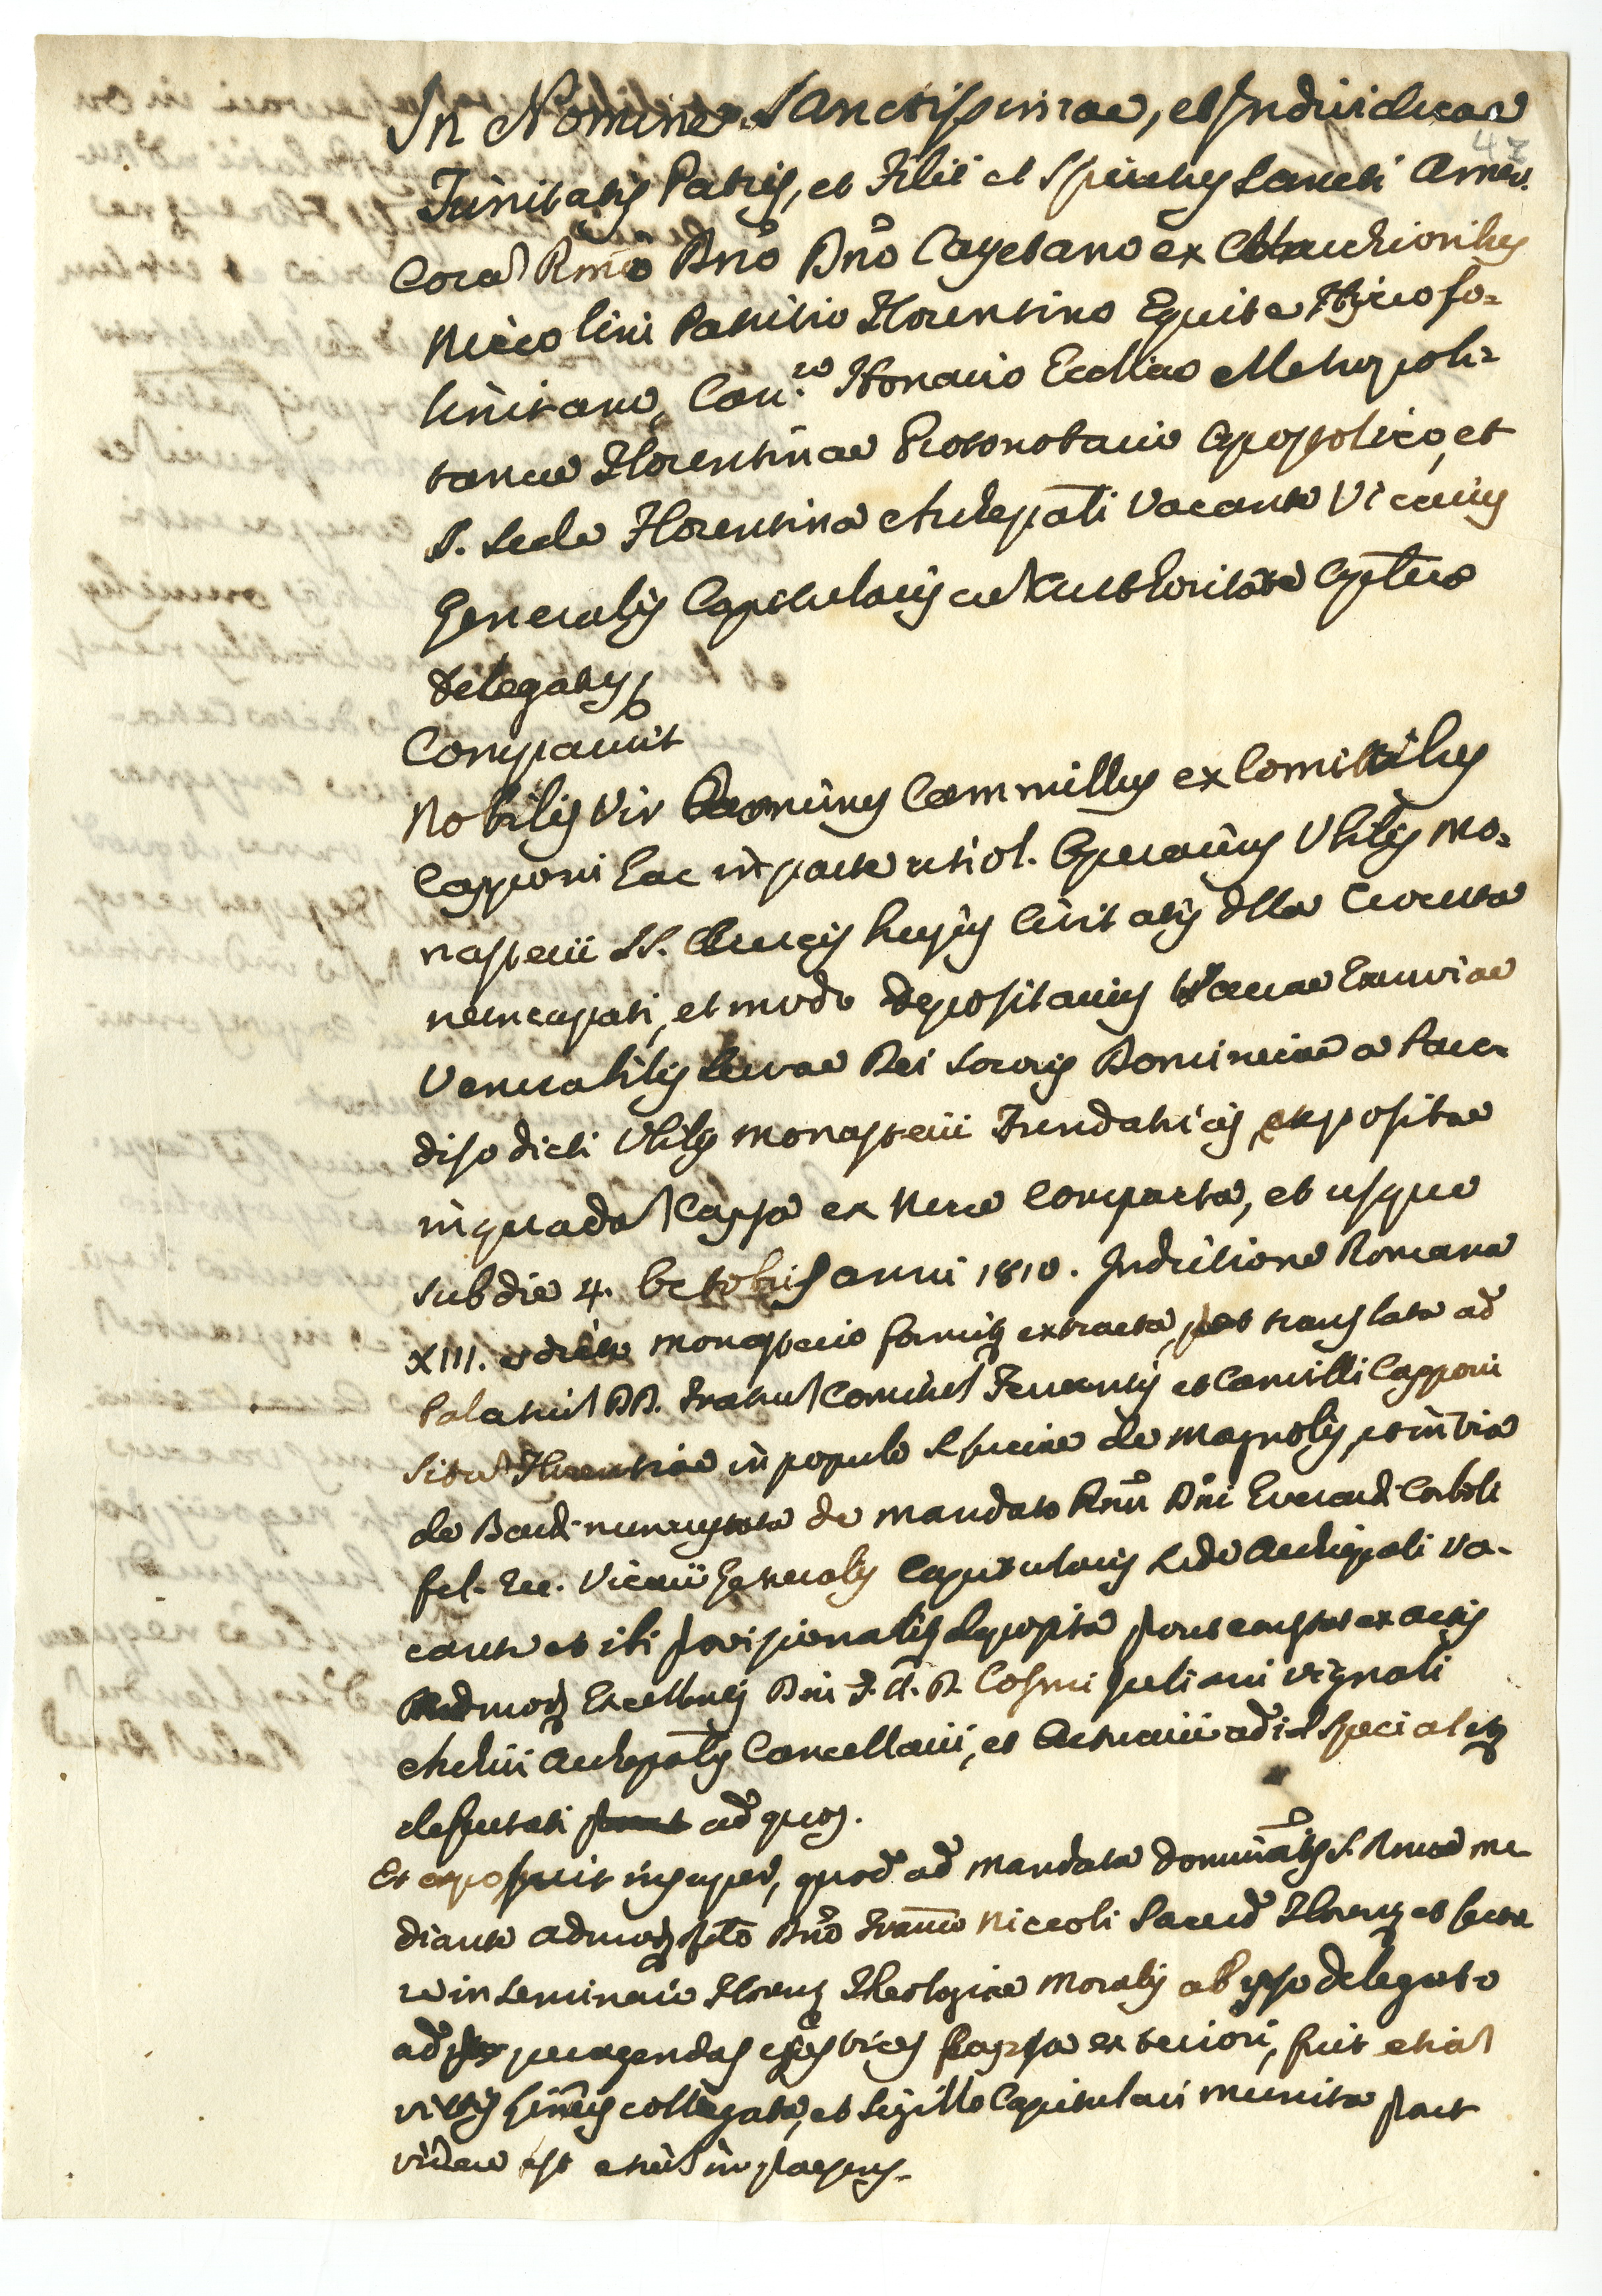 In Nomine Sanctissimae, et Individuae
47
Trinitatis Patris, et Filii et Spiritus Sancti Amen.
Cora Rmo Dno Dno Cajetano ex Marchionibus
Niccolini Patritio Florentino Equite Hyeroso=
limitano, Can.co Honario Eccliae Metropoli=
tanae Florentinae Protonotario Apostolico, et
S. Sede Florentina Archiepali Vacante Vicarius
Generalis Capitularis cu Authoritate Aptica
delegatus
Comparuit
Nobilis Vir Dominus Cammillus ex Comitibus
Capponi hac in parte uti ol. Operarius Vblis Mo=
nasterii SS. Crucis hujus Civitatis della Crocetta
nuncupati, et modo Depositarius Sacrae Exuviae
Venerabilis Servae Dei Sororis Dominicae a Para-
diso dicti Vblis Monasterii Fundatricis, expositae
in quada Capsa ex Nuce compacta, et usque
sub die 4. Octobris anni 1810. Indictione Romana
XIII. e dicto Monasterio extracta, et translata ad
Palatiu DD. Fratru Comitu Ferrantis et Camilli Capponi
situ Florentiae in populo S. Luciae de Magnolis, et in Via
de Bardi nuncupata de mandato Rmi Dni Everardi Corboli
fel. Rec. Vicarii Generalis Capitularis Sede Archiepali Va-
cante et ibi provisionaliter deposita prout constat ex actis
Admod Excellentis Dni J.U.D. Cosmi Juliani Vignali
Archivi Archiepalis Cancellarii, et Actuarii ad id specialiter
deputati ad quos.
Et exposuit insuper, quod ad mandata Dominatis S. Rmae me-
diante admod Dno Franco Niccoli Sacerd Floreno et lecto
re in Seminario Floreno Theologiae Moralis ab ipso delegato
ad peragendas ejus vices Capsa exteriori, fuit etia
vittis collegata, et Sigillo Capitulari munita prout
videre est etiā in praesens.